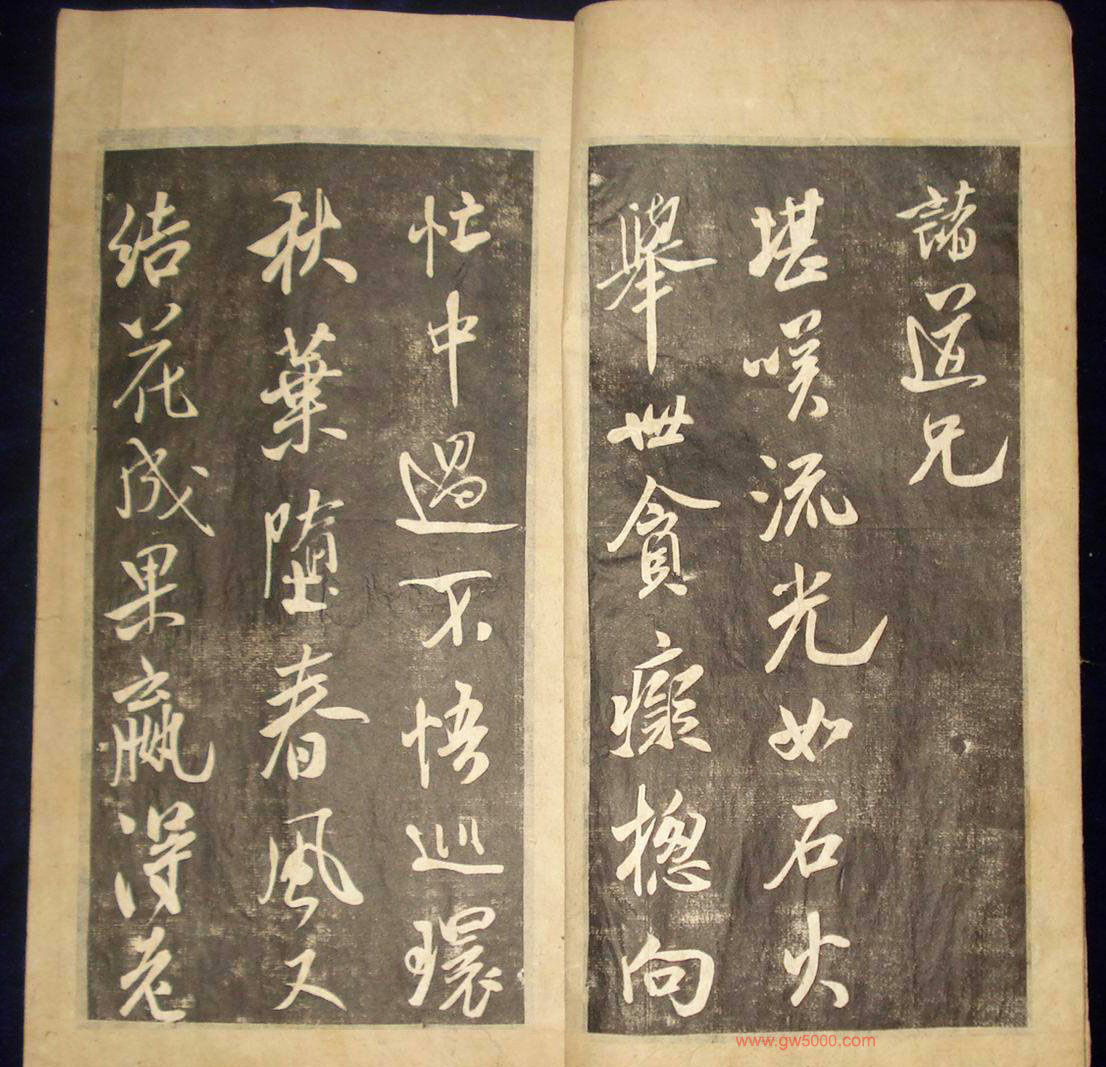 諸道兄
堪嘆流光如石火
舉世貪癡揔向
忙中過不悟巡環
秋葉墮春風又
結花成果贏得老
www.gw5000.com